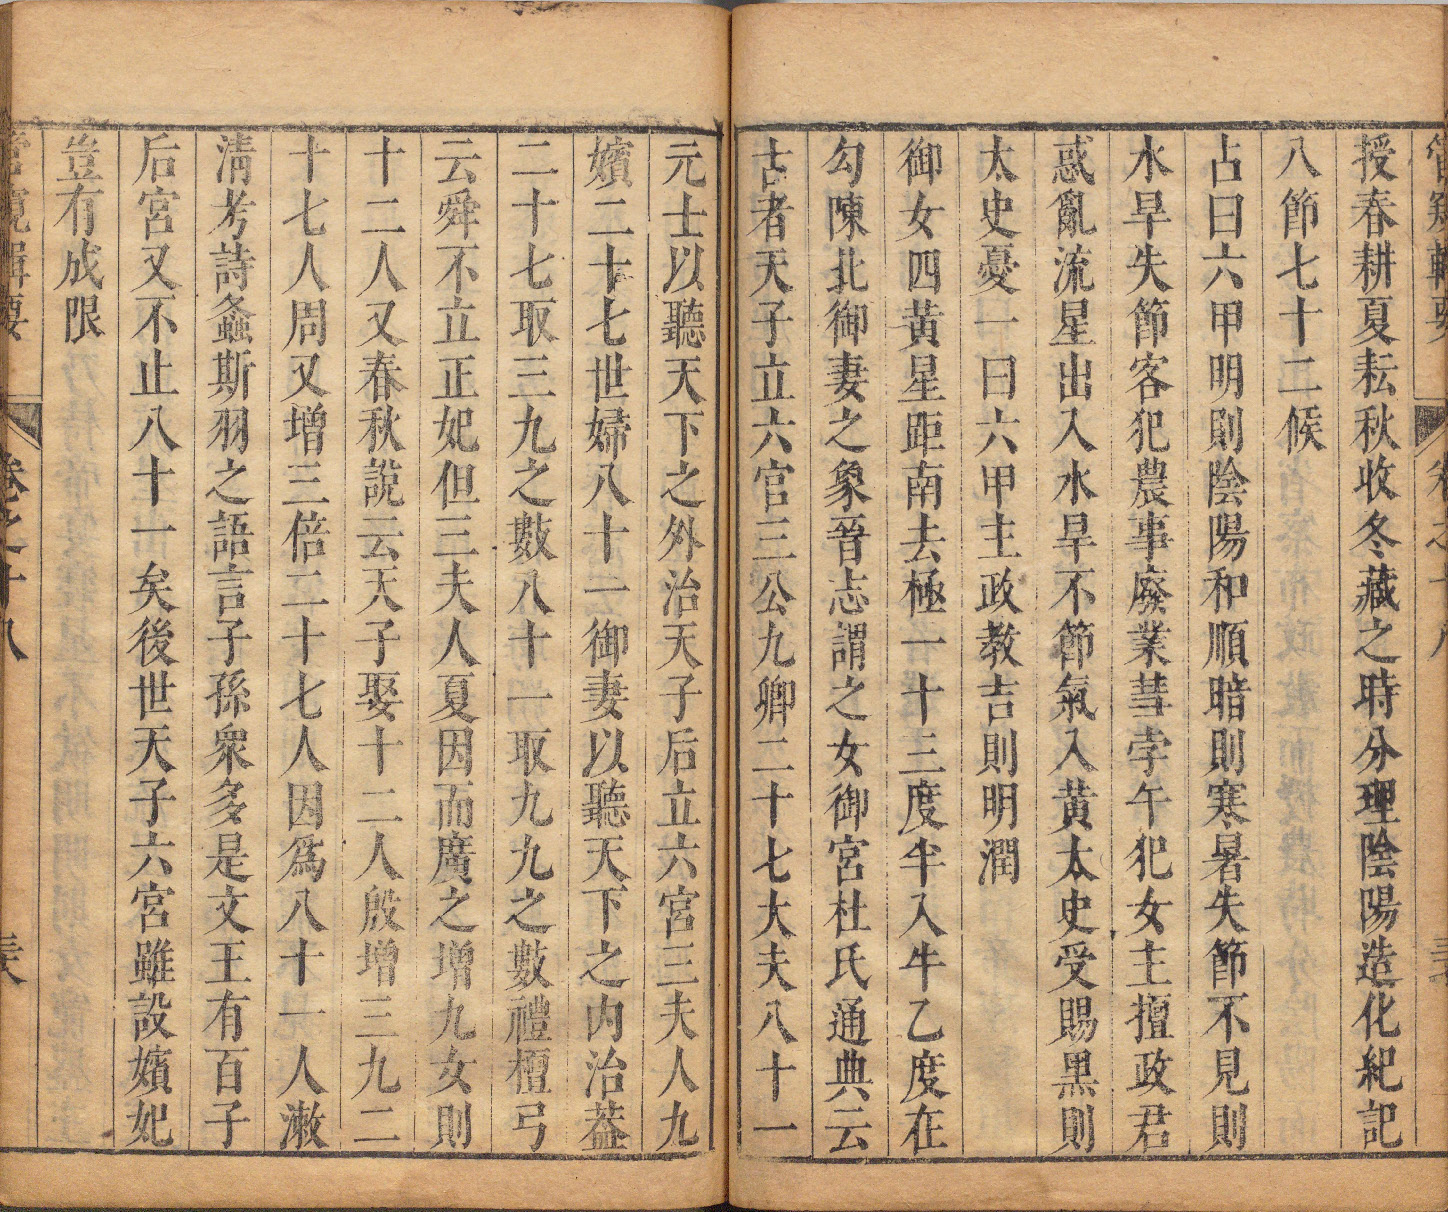 管窺輯要 卷之十八
授春耕夏耘秋收冬藏之時分理陰陽造化紀記
八節七十二候
占曰六甲明則陰陽和順暗則寒暑失節不見則
水旱失節客犯農事廢業彗孛午犯女主擅政君
惑亂流星出入水旱不節氣入黃太史受賜黑則
太史憂一曰六甲主政教吉則明潤
御女四黃星距南去極一十三度半入牛乙度在
勾陳北御妻之象晉志謂之女御宮杜氏通典云
古者天子立六官三公九卿二十七大夫八十一
元士以聽天下之外治天子后立六宮三夫人九
嬪二十七世婦八十一御妻以聽天下之內治葢
二十七取三九之數八十一取九九之數禮檀弓
云舜不立正妃但三夫人夏因而廣之增九女則
十二人又春秋說云天子娶十二人殷增三九二
十七人周又增三倍二十七人因爲八十一人漖
淸考詩螽斯羽之語言子孫衆多是文王有百子
后宮又不止八十一矣後世天子六宮雖設嬪妃
豈有成限
管窺輯要 卷之十八